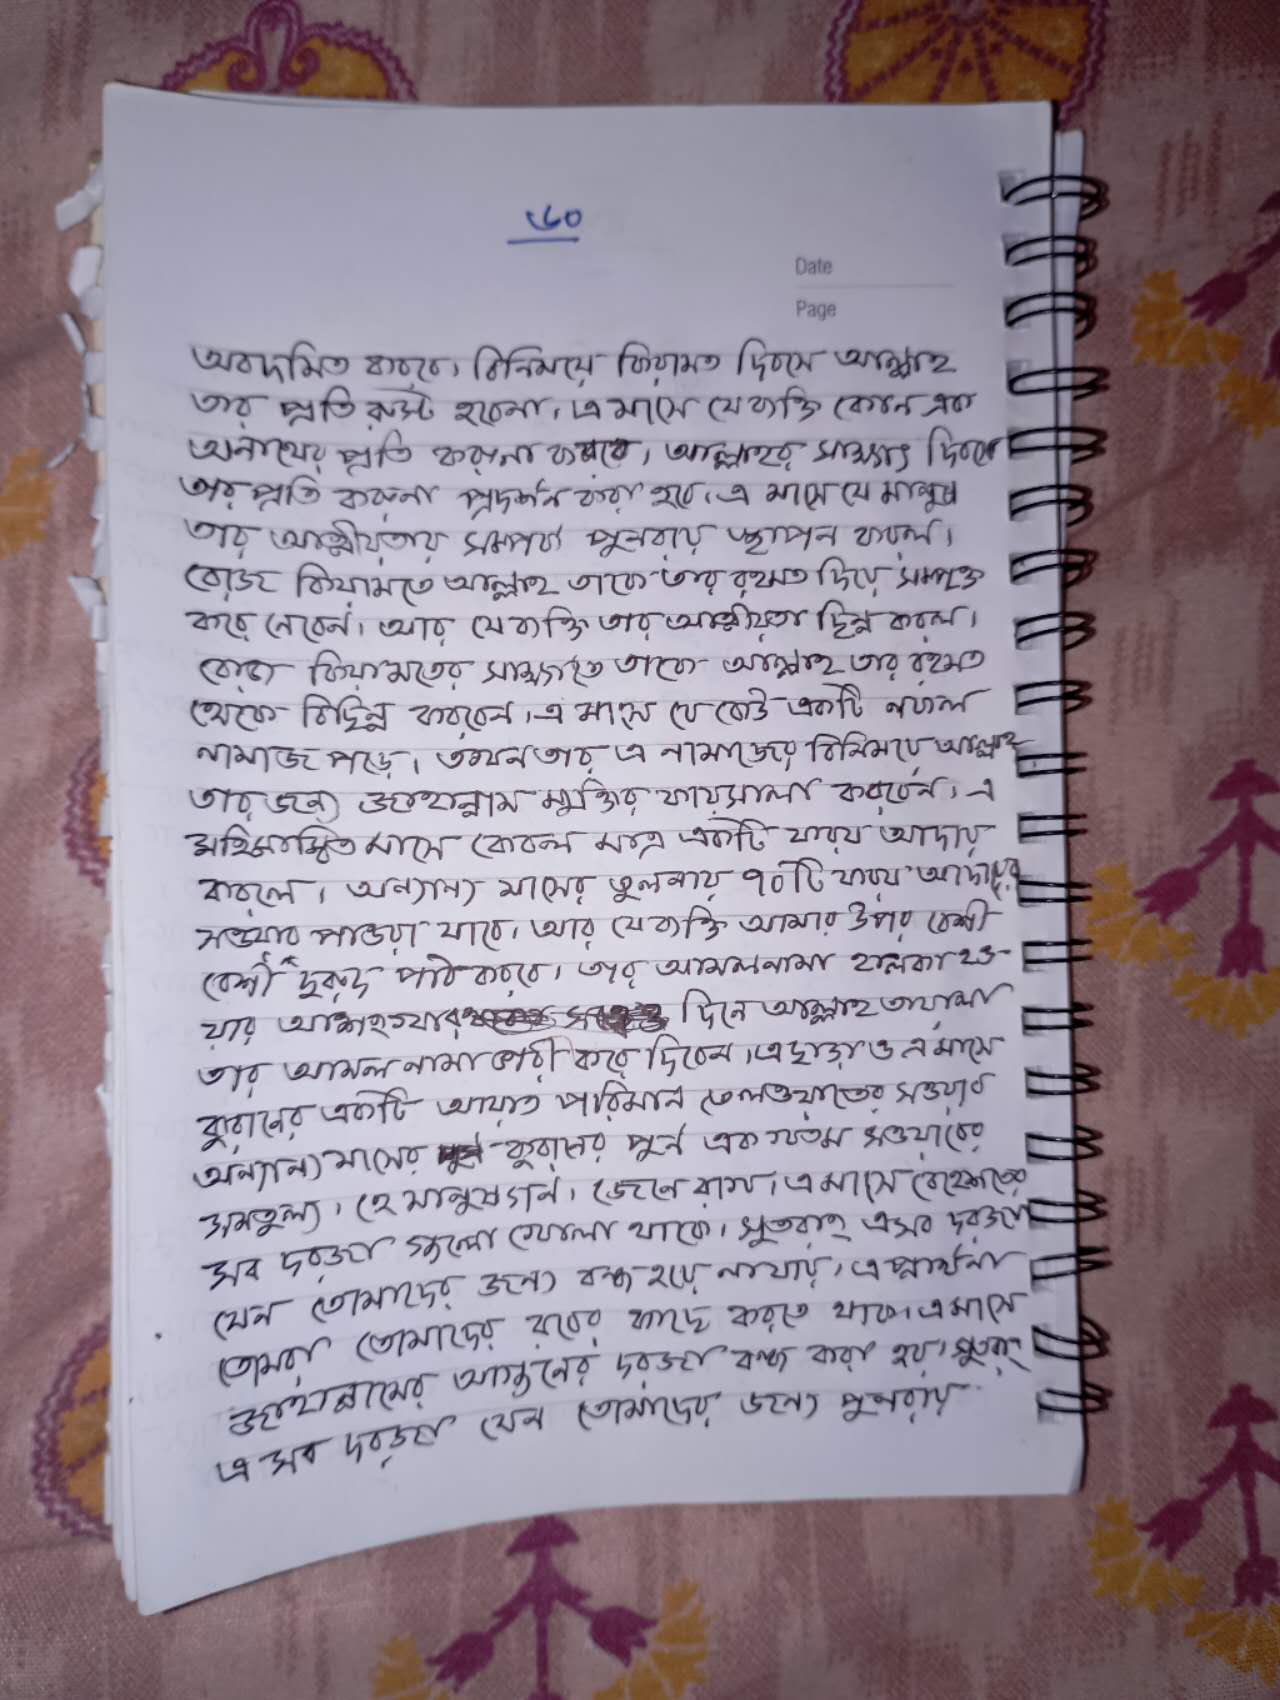 ৬০
Date
Page
অবদমিত করবে। বিনিময়ে কিয়ামত দিবসে আল্লাহ
তার প্রতি রুস্ট হবেনা। এ মাসে যে ব্যক্তি কোন এক
অনাথের প্রতি করুনা করবে, আল্লাহর সাক্ষাৎ দিবসে
তার প্রতি করুনা প্রদর্শন করা হবে। এ মাসে যে মানুষ
তার আত্মীয়তার সম্পর্ক পুনরায় স্থাপন করল।
রোজ কিয়ামতে আল্লাহ তাকে তার রহমত দিয়ে সম্পৃক্ত
করে নেবেন। আর যে ব্যক্তি তার আত্মীয়তা ছিন্ন করল।
রোজ কিয়ামতের সাক্ষাতে তাকে আল্লাহ তার রহমত
থেকে বিছিন্ন করবেন। এ মাসে যে কেউ একটি নফল
নামাজ পড়ে। তখন তার এ নামাজের বিনিময়ে আল্লাহ
তার জন্য জাহান্নাম মুক্তির ফায়সালা করবেন। এ
মহিমান্বিত মাসে কেবল মাত্র একটি ফরয আদায়
করলে। অন্যান্য মাসের তুলনায় ৭০টি ফরয আদায়ের
সওয়াব পাওয়া যাবে। আর যে ব্যক্তি আমার উপর বেশী
বেশী দুরুদ পাঠ করবে। তার আমলনামা হালকা হও-
য়ার আশংখার দিনে আল্লাহ তায়ালা
তার আমল নামা ভারী করে দিবেন। এছাড়া ও এ মাসে
কুরানের একটি আয়াত পরিমান তেলওয়াতের সওয়াব
অন্যান্য মাসের কুরানের পুর্ন এক খতম সওয়াবের
সমতুল্য। হে মানুষগন। জেনে রাখ। এ মাসে বেহেশতের
সব দরজা গুলো খোলা থাকে। সুতরাং এসব দরজা
যেন তোমাদের জন্য বন্ধ হয়ে না যায়। এ প্রার্থনা
তোমরা তোমাদের রবের কাছে করতে থাক। এ মাসে
জাহান্নামের আগুনের দরজা বন্ধ করা হয়। সুতরাং
এ সব দরজা যেন তোমাদের জন্য পুনরায়